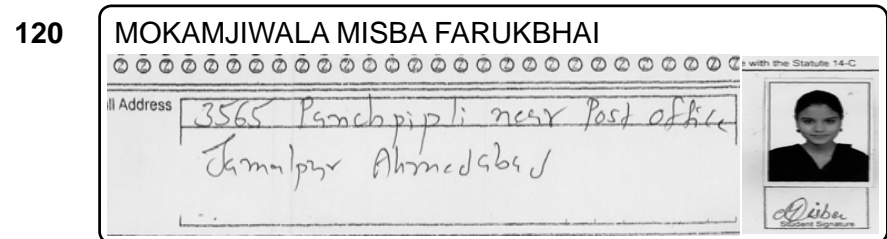 120
MOKAMJIWALA MISBA FARUKBHAI
e with the Statute 14-C
ll Address
3565 Panchpipli near Post office
Jamalpur Ahmedabad
Misba
Student Signature